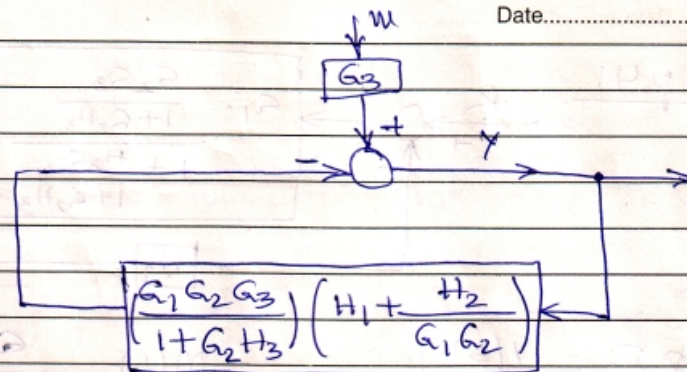 Date........................
m
G3
+
- Y
(G1 G2 G3 / 1 + G2 H3) (H1 + H2 / G1 G2)